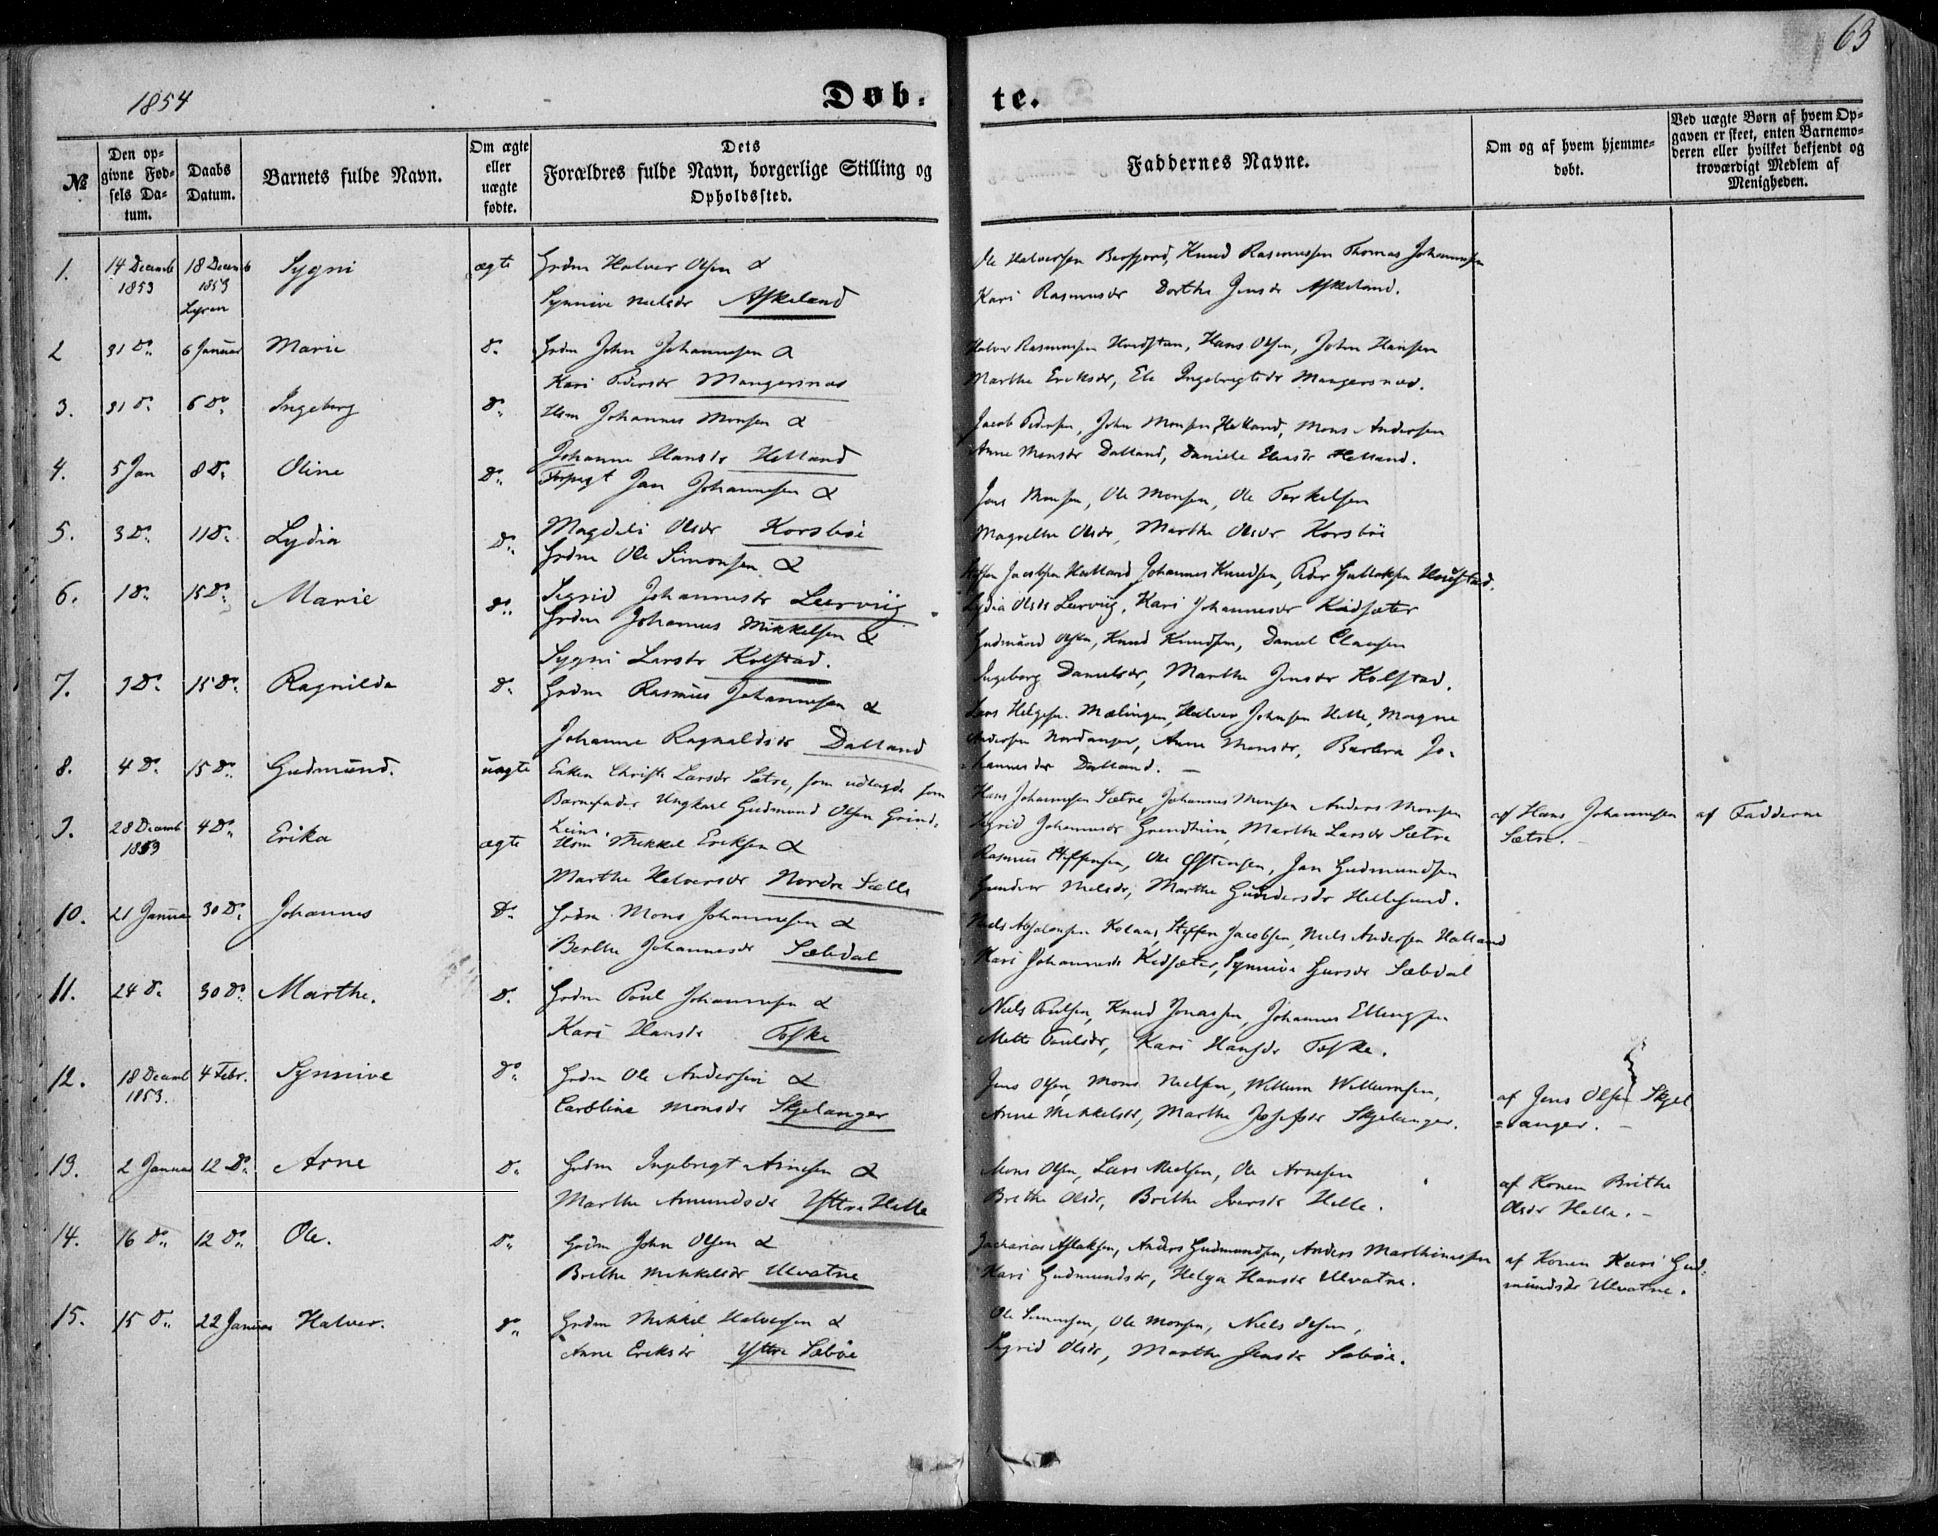 63
1854
Døb-
te.
№
Den opgivne Fødsels Datum.
Daabs Datum.
Barnets fulde Navn.
Om ægte eller uægte fødte.
Dets
Forældres fulde Navn, borgerlige Stilling og
Opholdssted.
Faddernes Navne.
Om og af hvem hjemmedøbt.
Ved uægte Børn af hvem Opgaven er skeet, enten Barnemoderen eller hvilket bekjendt og troværdigt Medlem af Menigheden.
1. 14 Decemb 1853 18 Decemb 1853 Lygren Sygni ægte Grdm Halver Olsen &
Synnive Nielsdr Askeland
Ole Halversen Knud Rasmussen Thomas Johannesen
Kari Rasmusdr Dorthe Jensdr Askeland.
2 31 Do. 6 Januar Marie Do. Grdm John Johannesen &
Kari Pedersdr Mangersnæs
Halver Rasmussen Hans Olsen, John Hansen
Marthe Eriksdr, Eli Ingebrigtsdr Mangersnæs.
3. 31 Do. 6 Do. Ingeborg Do. Hsm Johannes Monsen &
Johanne Hansdr Helland
Jacob Pedersen, John Monsen Helland, Mons Andersen
Anne Monsdr Dalland, Daniele Eliasdr Helland.
4. 5 Jan 8 Do. Oline Do. Forpagt Jan Johannesen &
Magdeli Olsdr Korsbøe
Jens Monsen, Ole Monsen, Ole Torkelsen
Magrethe Olsdr, Marthe Olsdr Korsbøe
5. 3 Do. 11 Do. Lydia Do. Grdm Ole Simonsen &
Sigrid Johannesdr Leerviig
Jacobsen Halland Johannes Knudsen, Peder
Lydia Olsdr Leervig, Kari Johannesdr Kidsæter
6. 1 Do. 15 Do. Marie Do. Grdm Johannes Mikkelsen &
Sygni Larsdr Kolstad.
Gudmund Olsen, Knud Knudsen, Daniel Clausen
Ingeborg Danielsdr, Marthe Jensdr Kolstad.
7. 3 Do. 15 Do. Ragnilda Do. Grdm Rasmus Johannesen &
Johanne Ragnaldsdr Dalland
Lars Helgesen Mælingen, Halver Johnsen Helle, Magne
Andersen Nordanger, Anne Monsdr, Barbra Jo-
hannesdr Dalland.
8. 4 Do. 15 Do. Gudmund. uægte Enken Christi Larsdr Sætre, som udlagde som
Barnefader Ungkarl Gudmund Olsen Grind-
heim.
Hans Johannesen Sætre Johannes Monsen Anders Monsen
Sigrid Johannesdr Grendheim, Marthe Larsdr Sætre
af Hans Johannesen
Sætre.
af Fadderne
9. 28 Decemb 1853 4 Do. Erika ægte Hsm Mikkel Eriksen &
Marthe Halversdr Nordre Sælle
Rasmus Steffensen, Ole Østensen, Jan Gudmundsen
Gundvor Nielsdr, Marthe Gundersdr Hillesund.
10. 21 Januar 30 Do. Johannes Do. Grdm Mons Johannesen &
Berthe Johannesdr Sæbdal
Niels Absalonsen Kolaas, Steffen Jacobsen, Niels Andersen Halland
Kari Johannesdr Kidsæter, Synnive Larsdr Sæbdal
11. 24 Do. 30 Do. Marthe. Do. Grdm Poul Johannesen &
Kari Hansdr Toske
Niels Poulsen, Knud Jonassen, Johannes Ellingsen
Mette Poulsdr, Kari Hansdr Toske.
12. 18 Decemb 1853. 4 Febr. Synnive Do. Grdm Ole Andersen &
Caroline Monsdr Skjelanger
Jens Olsen, Mons Nielsen, Willum Willumsen,
Anne Mikkelsdr, Marthe Josefsdr Skjelanger.
af Jens Olsen Skjel
anger.
13. 2 Januar 12 Do. Arne Do. Grdm Ingebrigt Arnesen &
Marthe Amundsdr Yttre Helle
Mons Olsen, Lars Nielsen, Ole Arnesen
Brithe Olsdr, Brithe Iversdr Helle.
af Konen Brithe
Olsdr Helle.
14. 16 Do. 12 Do. Ole. Do. Grdm John Olsen &
Brithe Mikkelsdr Ulvatne
Zacharias Aslaksen, Anders Gudmundsen, Anders Marthinussen
Kari Gudmundsdr, Helga Hansdr Ulvatne.
af Konen Kari Gud-
mundsdr Ulvatne.
15. 15 Do. 22 Januar Halver. Do. Grdm Mikkel Halversen &
Anne Eriksdr Yttre Sæbøe
Ole Simonsen, Ole Monsen, Niels Olsen,
Sigrid Olsdr, Marthe Jensdr Sæbøe.